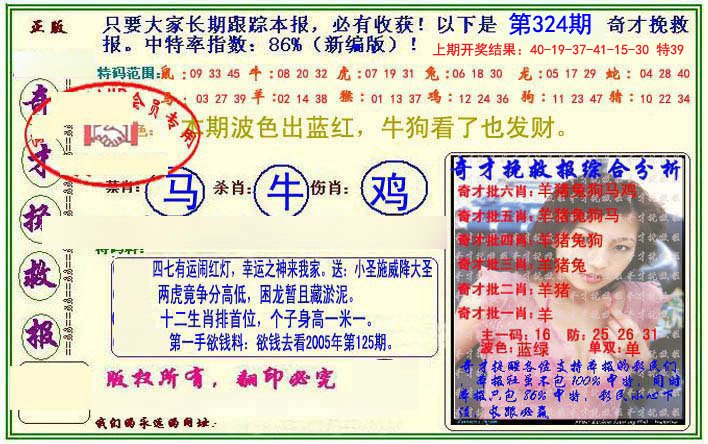 正版
只要大家长期跟踪本报,必有收获!以下是 第324期 奇才挽救
报。中特率指数:86%(新编版)!
上期开奖结果:40-19-37-41-15-30 特39
特码范围:鼠:09 33 45 牛:08 20 32 虎:07 19 31 兔:06 18 30 龙:05 17 29 蛇:04 28 40
03 27 39 羊:02 14 38 猴:01 13 37 鸡:12 24 36 狗:11 23 47 猪:10 22 34
会员专用
本期波色出蓝红,牛狗看了也发财。
奇才挽救报
禁肖: 马 杀肖: 牛 伤肖: 鸡
四七有运闹红灯,幸运之神来我家。送:小圣施威降大圣
两虎竟争分高低,困龙暂且藏淤泥。
十二生肖排首位,个子身高一米一。
第一手欲钱料:欲钱去看2005年第125期。
版权所有,翻印必究
我们的永远的网址:
奇才挽救报综合分析
奇才批六肖:羊猪兔狗马鸡
奇才批五肖:羊猪兔狗马
奇才批四肖:羊猪兔狗
奇才批三肖:羊猪兔
奇才批二肖:羊猪
奇才批一肖:羊
主一码:16 防:25 26 31
波色:蓝绿 单双:单
奇才提醒各位支持本报的彩民们
,本报社虽不包100%中特,同时
本报只包86%中特,彩民小心下
注,长跟必赢